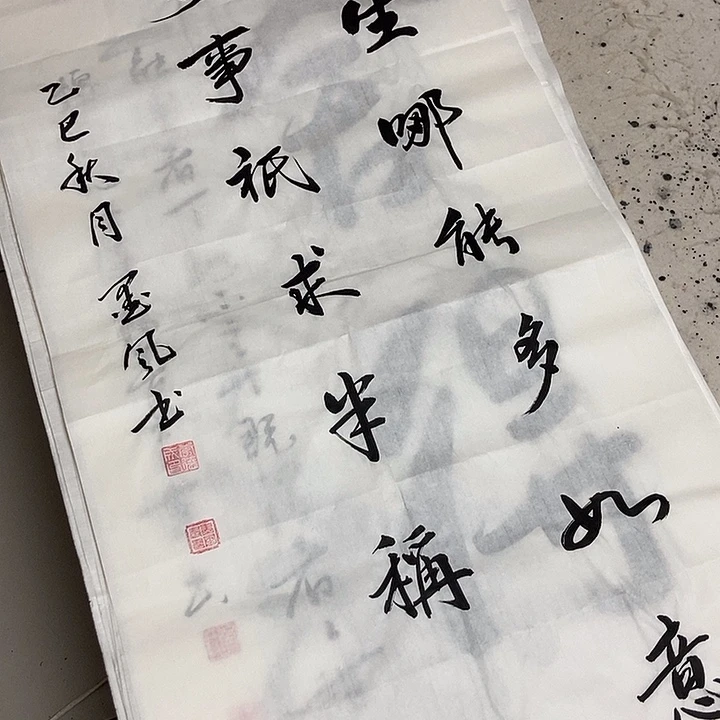 生哪能多如意
事祇求半稱
乙巳秋月 墨风书